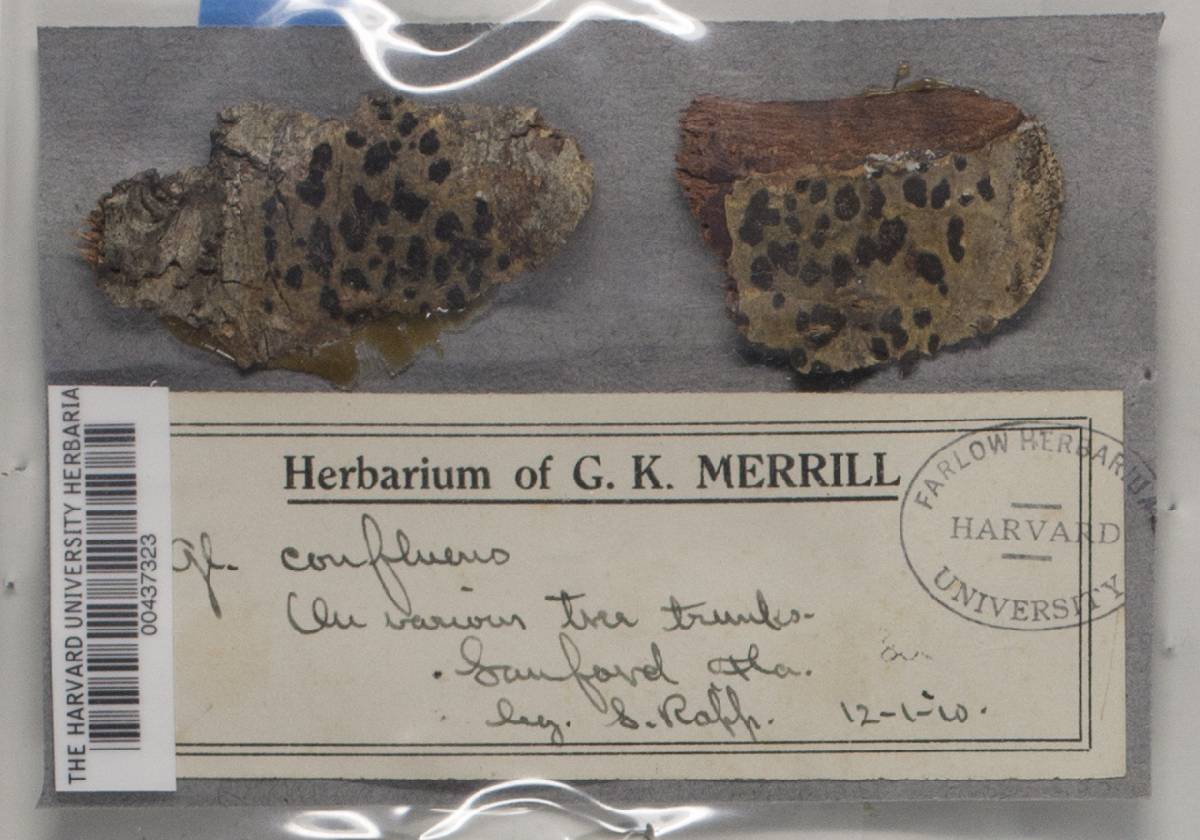 THE HARVARD UNIVERSITY HERBARIA
00437323
Herbarium of G. K. MERRILL
FARLOW HERBARIUM
HARVARD
UNIVERSITY
Gl. confluens
On various tree trunks.
Sanford Fla.
leg. S. Rapp. 12-1-10.